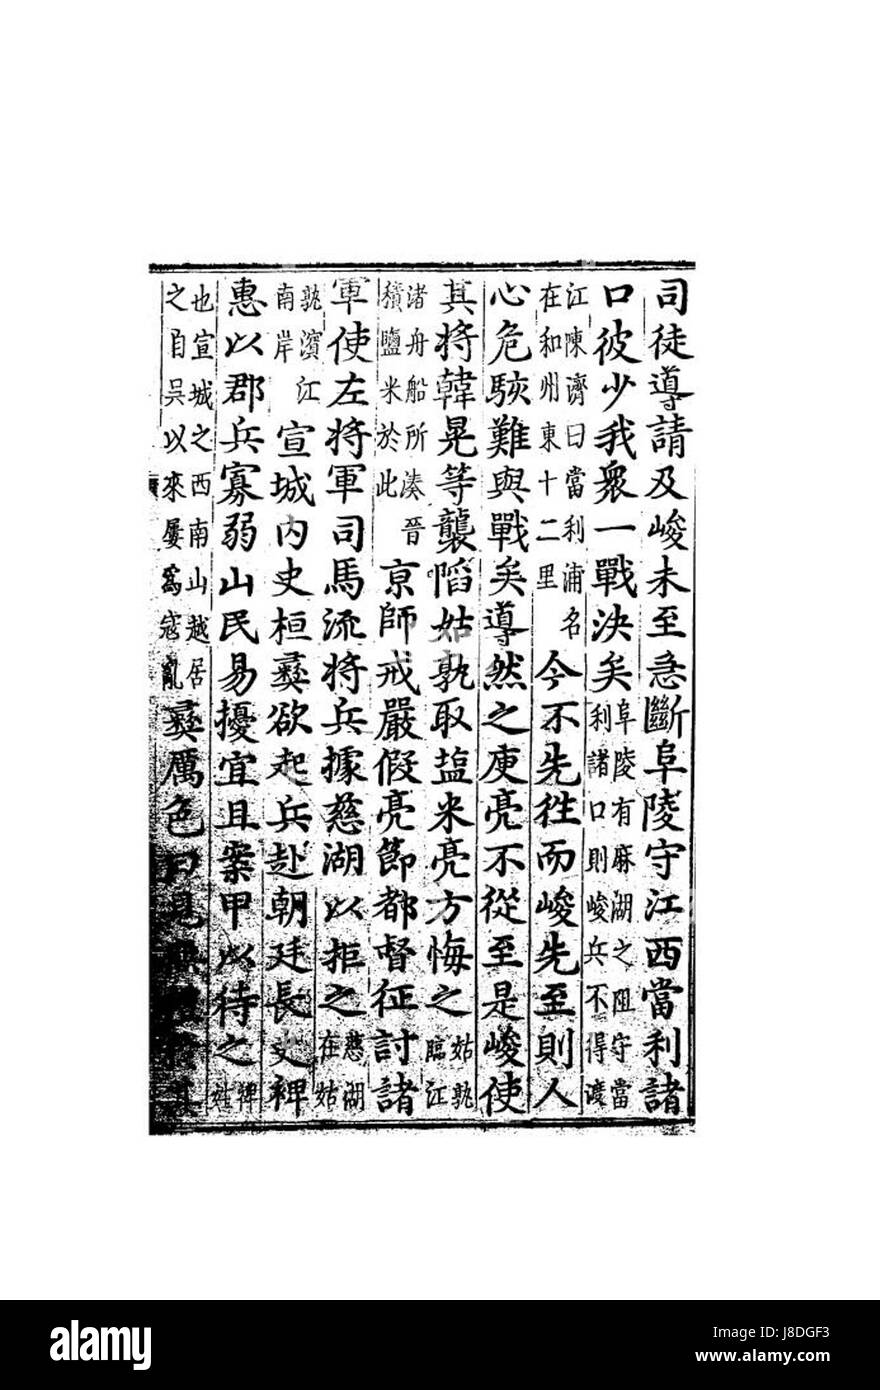 司徒導請及峻未至急斷阜陵守江西當利諸
口彼少我衆一戰決矣阜陵有麻湖之阻守當利諸口則峻兵不得渡
江陳濟曰當利浦名在和州東十二里今不先徃而峻先至則人
心危駭難與戰矣導然之庾亮不從至是峻使
其將韓晃等襲陷姑孰取盐米亮方悔之姑孰臨江
渚舟船所湊晉積鹽米於此京師戒嚴假亮節都督征討諸
軍使左將軍司馬流將兵據慈湖以拒之慈湖在姑
孰濱江南岸宣城内史桓彝欲起兵赴朝廷長史裨
惠以郡兵寡弱山民易擾宜且案甲以待之裨姓
也宣城之西南山越居之自吳以來屢爲寇亂彝厲色曰見無禮其
alamy
Image ID: J8DGF3
www.alamy.com